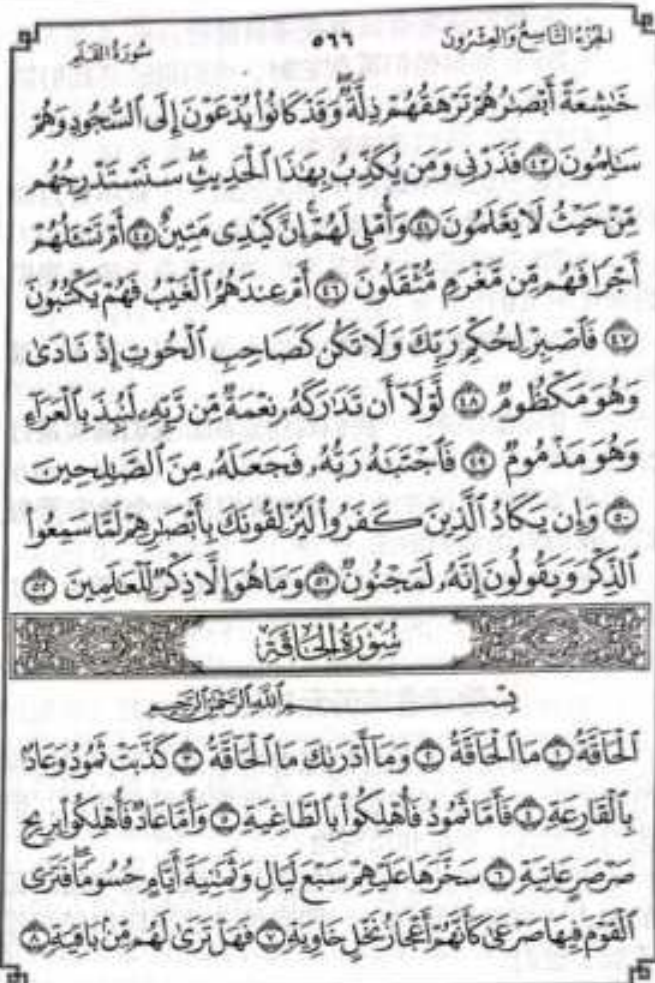 الجزء التاسع والعشرون ٥٦٦ سورة القلم
خَٰشِعَةً أَبْصَٰرُهُمْ تَرْهَقُهُمْ ذِلَّةٌ ۖ وَقَدْ كَانُوا۟ يُدْعَوْنَ إِلَى ٱلسُّجُودِ وَهُمْ
سَٰلِمُونَ ٤٣ فَذَرْنِى وَمَن يُكَذِّبُ بِهَٰذَا ٱلْحَدِيثِ ۖ سَنَسْتَدْرِجُهُم
مِّنْ حَيْثُ لَا يَعْلَمُونَ ٤٤ وَأُمْلِى لَهُمْ ۚ إِنَّ كَيْدِى مَتِينٌ ٤٥ أَمْ تَسْـَٔلُهُمْ
أَجْرًا فَهُم مِّن مَّغْرَمٍ مُّثْقَلُونَ ٤٦ أَمْ عِندَهُمُ ٱلْغَيْبُ فَهُمْ يَكْتُبُونَ
٤٧ فَٱصْبِرْ لِحُكْمِ رَبِّكَ وَلَا تَكُن كَصَاحِبِ ٱلْحُوتِ إِذْ نَادَىٰ
وَهُوَ مَكْظُومٌ ٤٨ لَّوْلَآ أَن تَدَٰرَكَهُۥ نِعْمَةٌ مِّن رَّبِّهِۦ لَنُبِذَ بِٱلْعَرَآءِ
وَهُوَ مَذْمُومٌ ٤٩ فَٱجْتَبَٰهُ رَبُّهُۥ فَجَعَلَهُۥ مِنَ ٱلصَّٰلِحِينَ
٥٠ وَإِن يَكَادُ ٱلَّذِينَ كَفَرُوا۟ لَيُزْلِقُونَكَ بِأَبْصَٰرِهِمْ لَمَّا سَمِعُوا۟
ٱلذِّكْرَ وَيَقُولُونَ إِنَّهُۥ لَمَجْنُونٌ ٥١ وَمَا هُوَ إِلَّا ذِكْرٌ لِّلْعَٰلَمِينَ ٥٢
سُورَةُ الحَاقَّةِ
بِسْمِ ٱللَّهِ ٱلرَّحْمَٰنِ ٱلرَّحِيمِ
ٱلْحَآقَّةُ ١ مَا ٱلْحَآقَّةُ ٢ وَمَآ أَدْرَىٰكَ مَا ٱلْحَآقَّةُ ٣ كَذَّبَتْ ثَمُودُ وَعَادٌۢ
بِٱلْقَارِعَةِ ٤ فَأَمَّا ثَمُودُ فَأُهْلِكُوا۟ بِٱلطَّاغِيَةِ ٥ وَأَمَّا عَادٌ فَأُهْلِكُوا۟ بِرِيحٍ
صَرْصَرٍ عَاتِيَةٍ ٦ سَخَّرَهَا عَلَيْهِمْ سَبْعَ لَيَالٍ وَثَمَٰنِيَةَ أَيَّامٍ حُسُومًا ۖ فَتَرَى
ٱلْقَوْمَ فِيهَا صَرْعَىٰ كَأَنَّهُمْ أَعْجَازُ نَخْلٍ خَاوِيَةٍ ٧ فَهَلْ تَرَىٰ لَهُم مِّنۢ بَاقِيَةٍ ٨